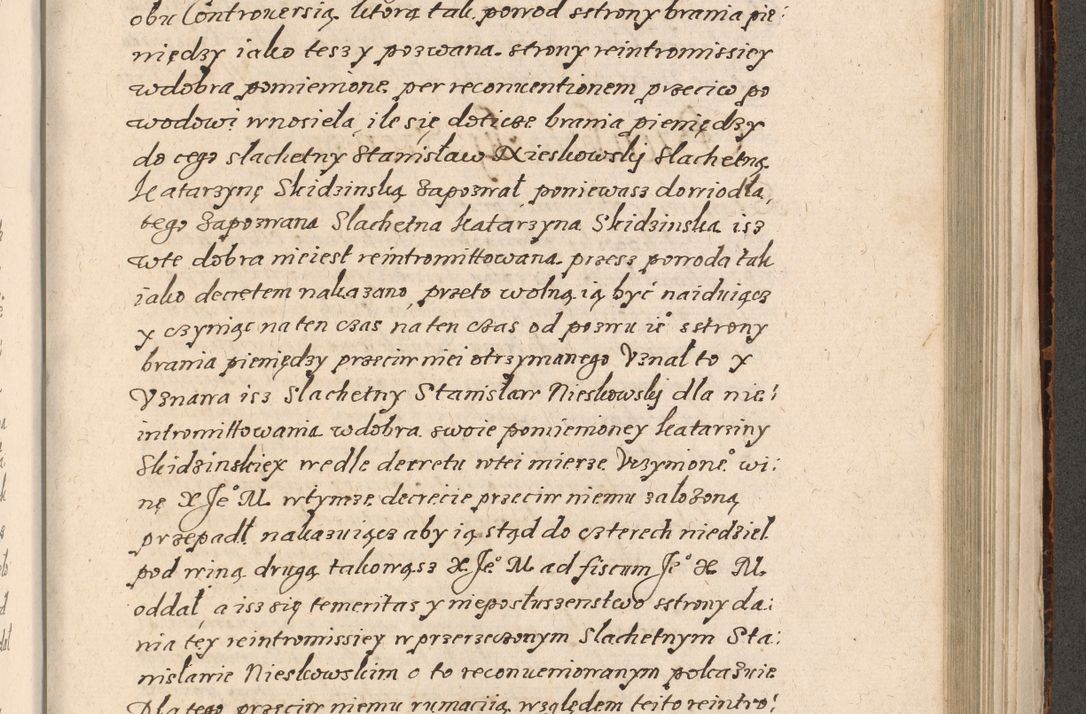 obu Controuersią, ktorą tak powod sstrony brania pie:
niędzy iako tesz y pozwana strony reintromissiey
wdobra pomienione per reconuentionem przeciw po
wodowi wnosieła, ile się doticze brania pieniędzy
do cego slachetny Stanisław Nieskowsky Slachetną
Katarzynę Skidzinską Zapozwał, poniewasz dowiodła,
tego Zapozwana Slachetna Katarzyna Skidzinska isz
wte dobra nieiest reintromittowana przesz powoda tak
iako decretem nakazano, przeto wolną ią być naiduiącz
y czyniąc na ten czas na ten czas od pozwu ie° sstrony
brania pieniędzy przeciw niei otrzymanego Vznał to y
Vznawa isz Slachetny Stanisław Nieskowskÿ dla nie:
intromittowania wdobra swoie pomienioney Katarziny
Skidzinskiey wedle decretu wtei mierze Vczynione° wi:
nę X Je° M. wtymze decrecie przeciw niemu założoną
przepadł, nakazuiącz aby ią stąd do czterech niedziel
pod winą drugą takowąsz X Je° M ad fiscum Je° X M.
oddał, a isz się temeritas y nieposłuszenstwo sstrony da:
nia tęy reintromissiey wprzerzeczonym Slachetnym Sta:
nisławie Nieskowskim o to reconueniowanym pokazuie
Dla tego przeciw niemu rumaciią względem tei to reintro: